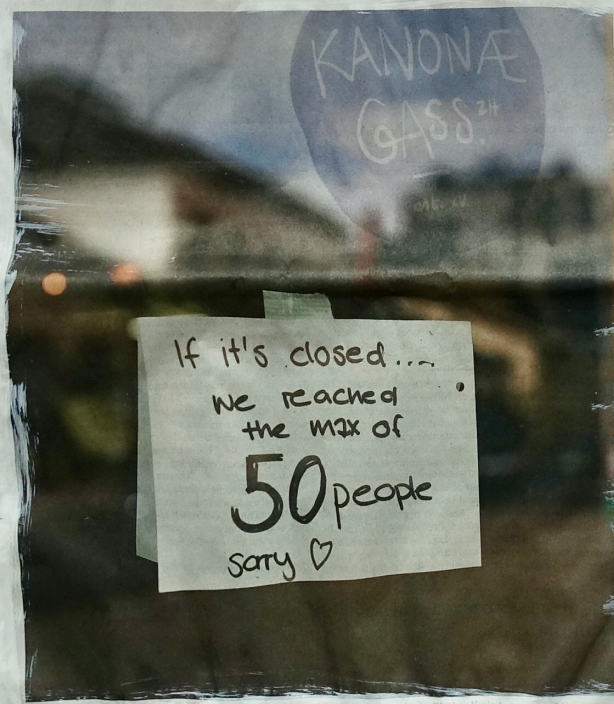 KANONÆ
GASS. 
If it's closed....
we reached
the max of
50 people
sorry ♡